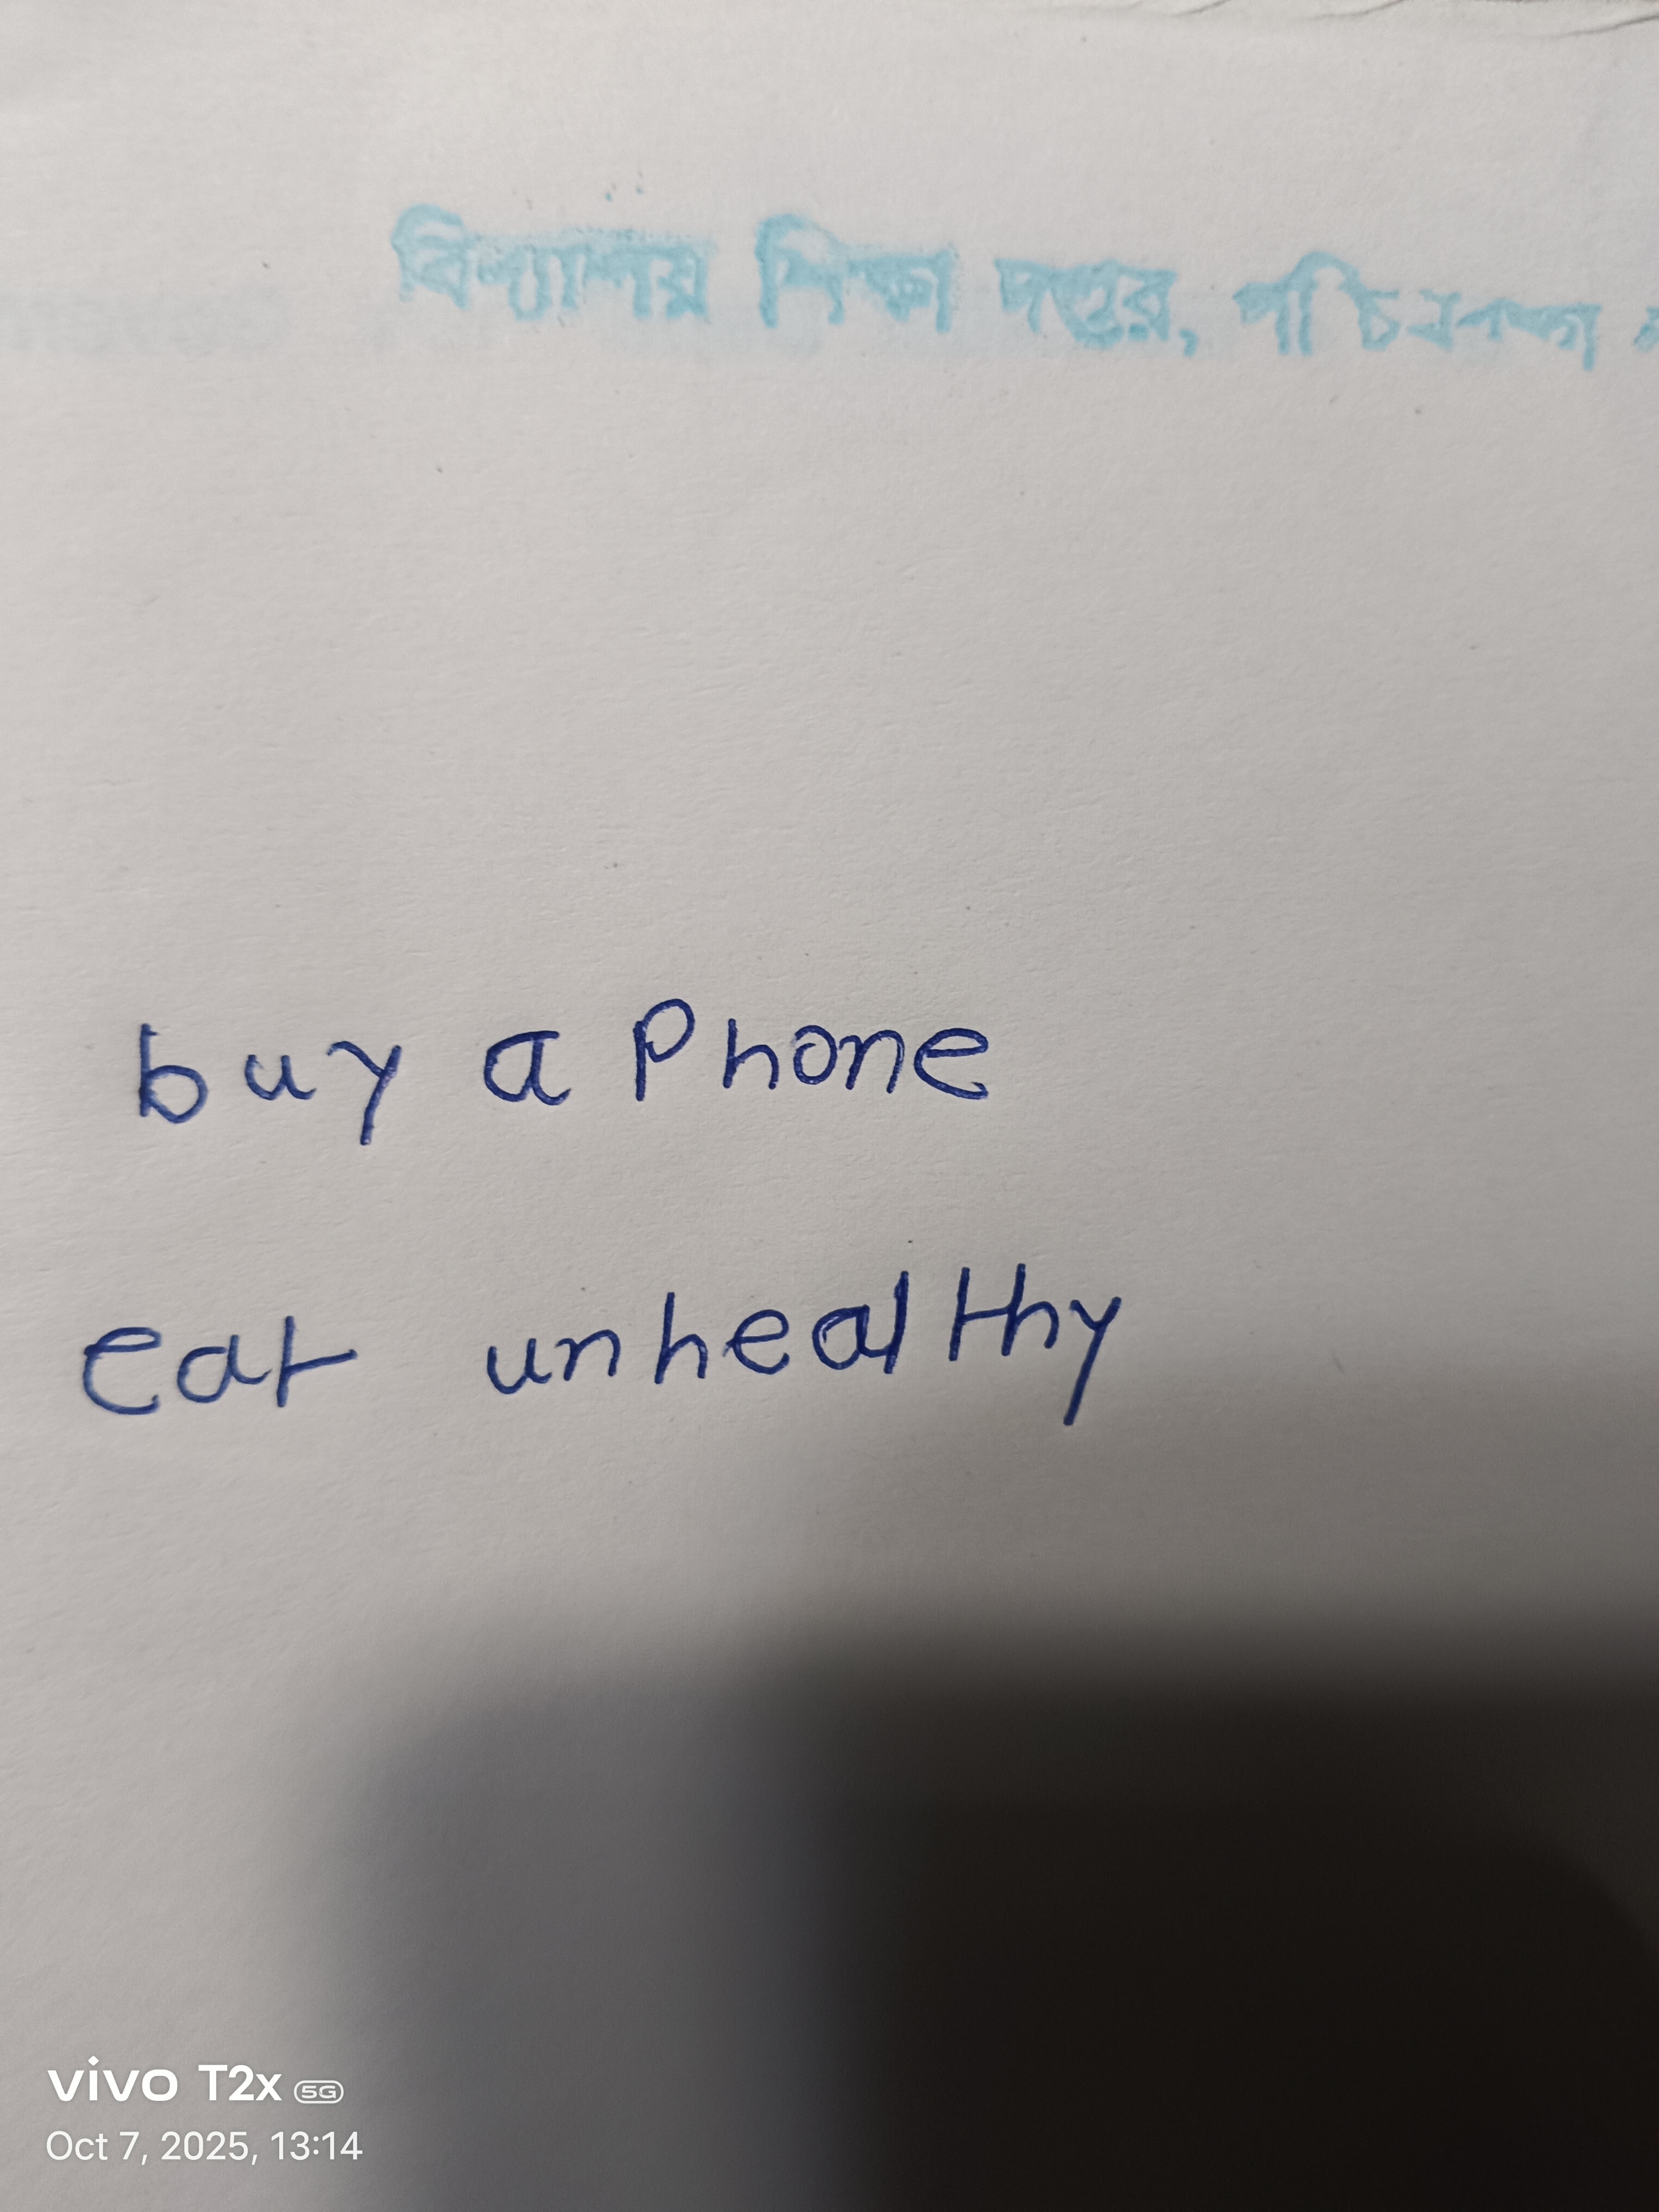 বিদ্যালয় শিক্ষা দপ্তর, পশ্চিমবঙ্গ
buy a Phone
eat unhealthy
vivo T2x 5G
Oct 7, 2025, 13:14